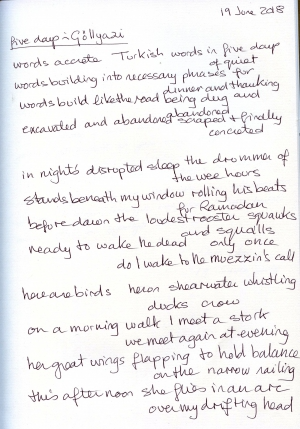 19 June 2018
five days in Göllyazi
words accrete Turkish words in five days
of quiet
words building into necessary phrases for
dinner and thanking
words build like the road being dug and
abandoned
excavated and abandoned scraped + finally
concreted
in night's disrupted sleep the drummer of
the wee hours
stands beneath my window rolling his beats
for Ramadan
before dawn the loudest rooster squawks
and squalls
ready to wake the dead only once
do I wake to the muezzin's call
here are birds heron shearwater whistling
ducks crow
on a morning walk I meet a stork
we meet again at evening
her great wings flapping to hold balance
on the narrow railing
this afternoon she flies in an arc
over my drifting head